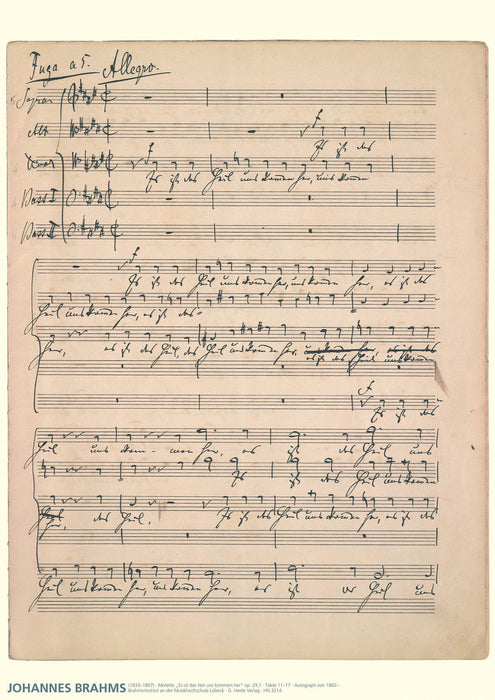 Fuga a 5. Allegro.
Sopran
Alt
Es ist das
Tenor
Es ist das Heil uns kommen her, uns kommen
Bass I
Bass II
Es ist das Heil uns kommen her, uns kommen her, es ist das
Heil uns kommen her, es ist das
her, es ist das Heil, das Heil uns kommen her,
es ist das Heil uns kommen
Es ist das
Heil uns kom- men her, es ist das Heil uns
Es ist das Heil uns
her, das Heil. Es ist das Heil uns kommen her, es ist das
Heil uns kommen her, uns kommen her, es ist das Heil uns
JOHANNES BRAHMS
(1833–1897) · Motette „Es ist das Heil uns kommen her“ op. 29,1 · Takte 11–17 · Autograph von 1860 ·
Brahms-Institut an der Musikhochschule Lübeck · G. Henle Verlag · HN 3214